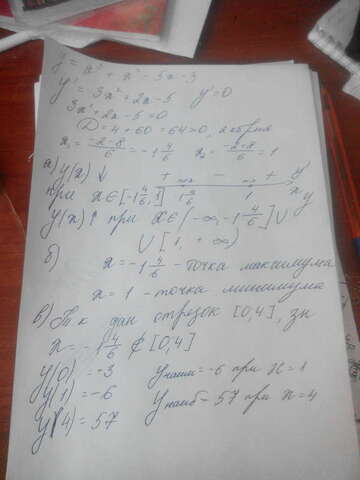 y = x³ + x² - 5x - 3
y' = 3x² + 2x - 5   y' = 0
3x² + 2x - 5 = 0
D = 4 + 60 = 64 > 0, 2 корня
x₁ = (-2-8)/6 = -1 4/6   x₂ = (-2+8)/6 = 1
а) y(x) ↓   + max - min + y'
при x ∈ [-1 4/6; 1]   1 4/6   1   x   y
y(x) ↑ при x ∈ (-∞, -1 4/6] ∪
∪ [1, +∞)
б) x = -1 4/6 - точка максимума
x = 1 - точка минимума
в) Т.к дан отрезок [0,4], зн
x = -1 4/6 ∉ [0,4]
y(0) = -3   y наим = -6 при x = 1
y(1) = -6
y(4) = 57   y наиб = 57 при x = 4